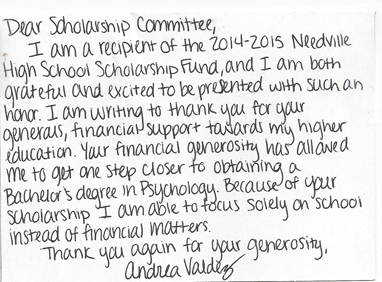 Dear Scholarship Committee,
I am a recipient of the 2014-2015 Needville
High School Scholarship Fund, and I am both
grateful and excited to be presented with such an
honor. I am writing to thank you for your
generous, financial support towards my higher
education. Your financial generosity has allowed
me to get one step closer to obtaining a
Bachelor's degree in Psychology. Because of your
scholarship I am able to focus solely on school
instead of financial matters.
Thank you again for your generosity,
Andrea Valdez